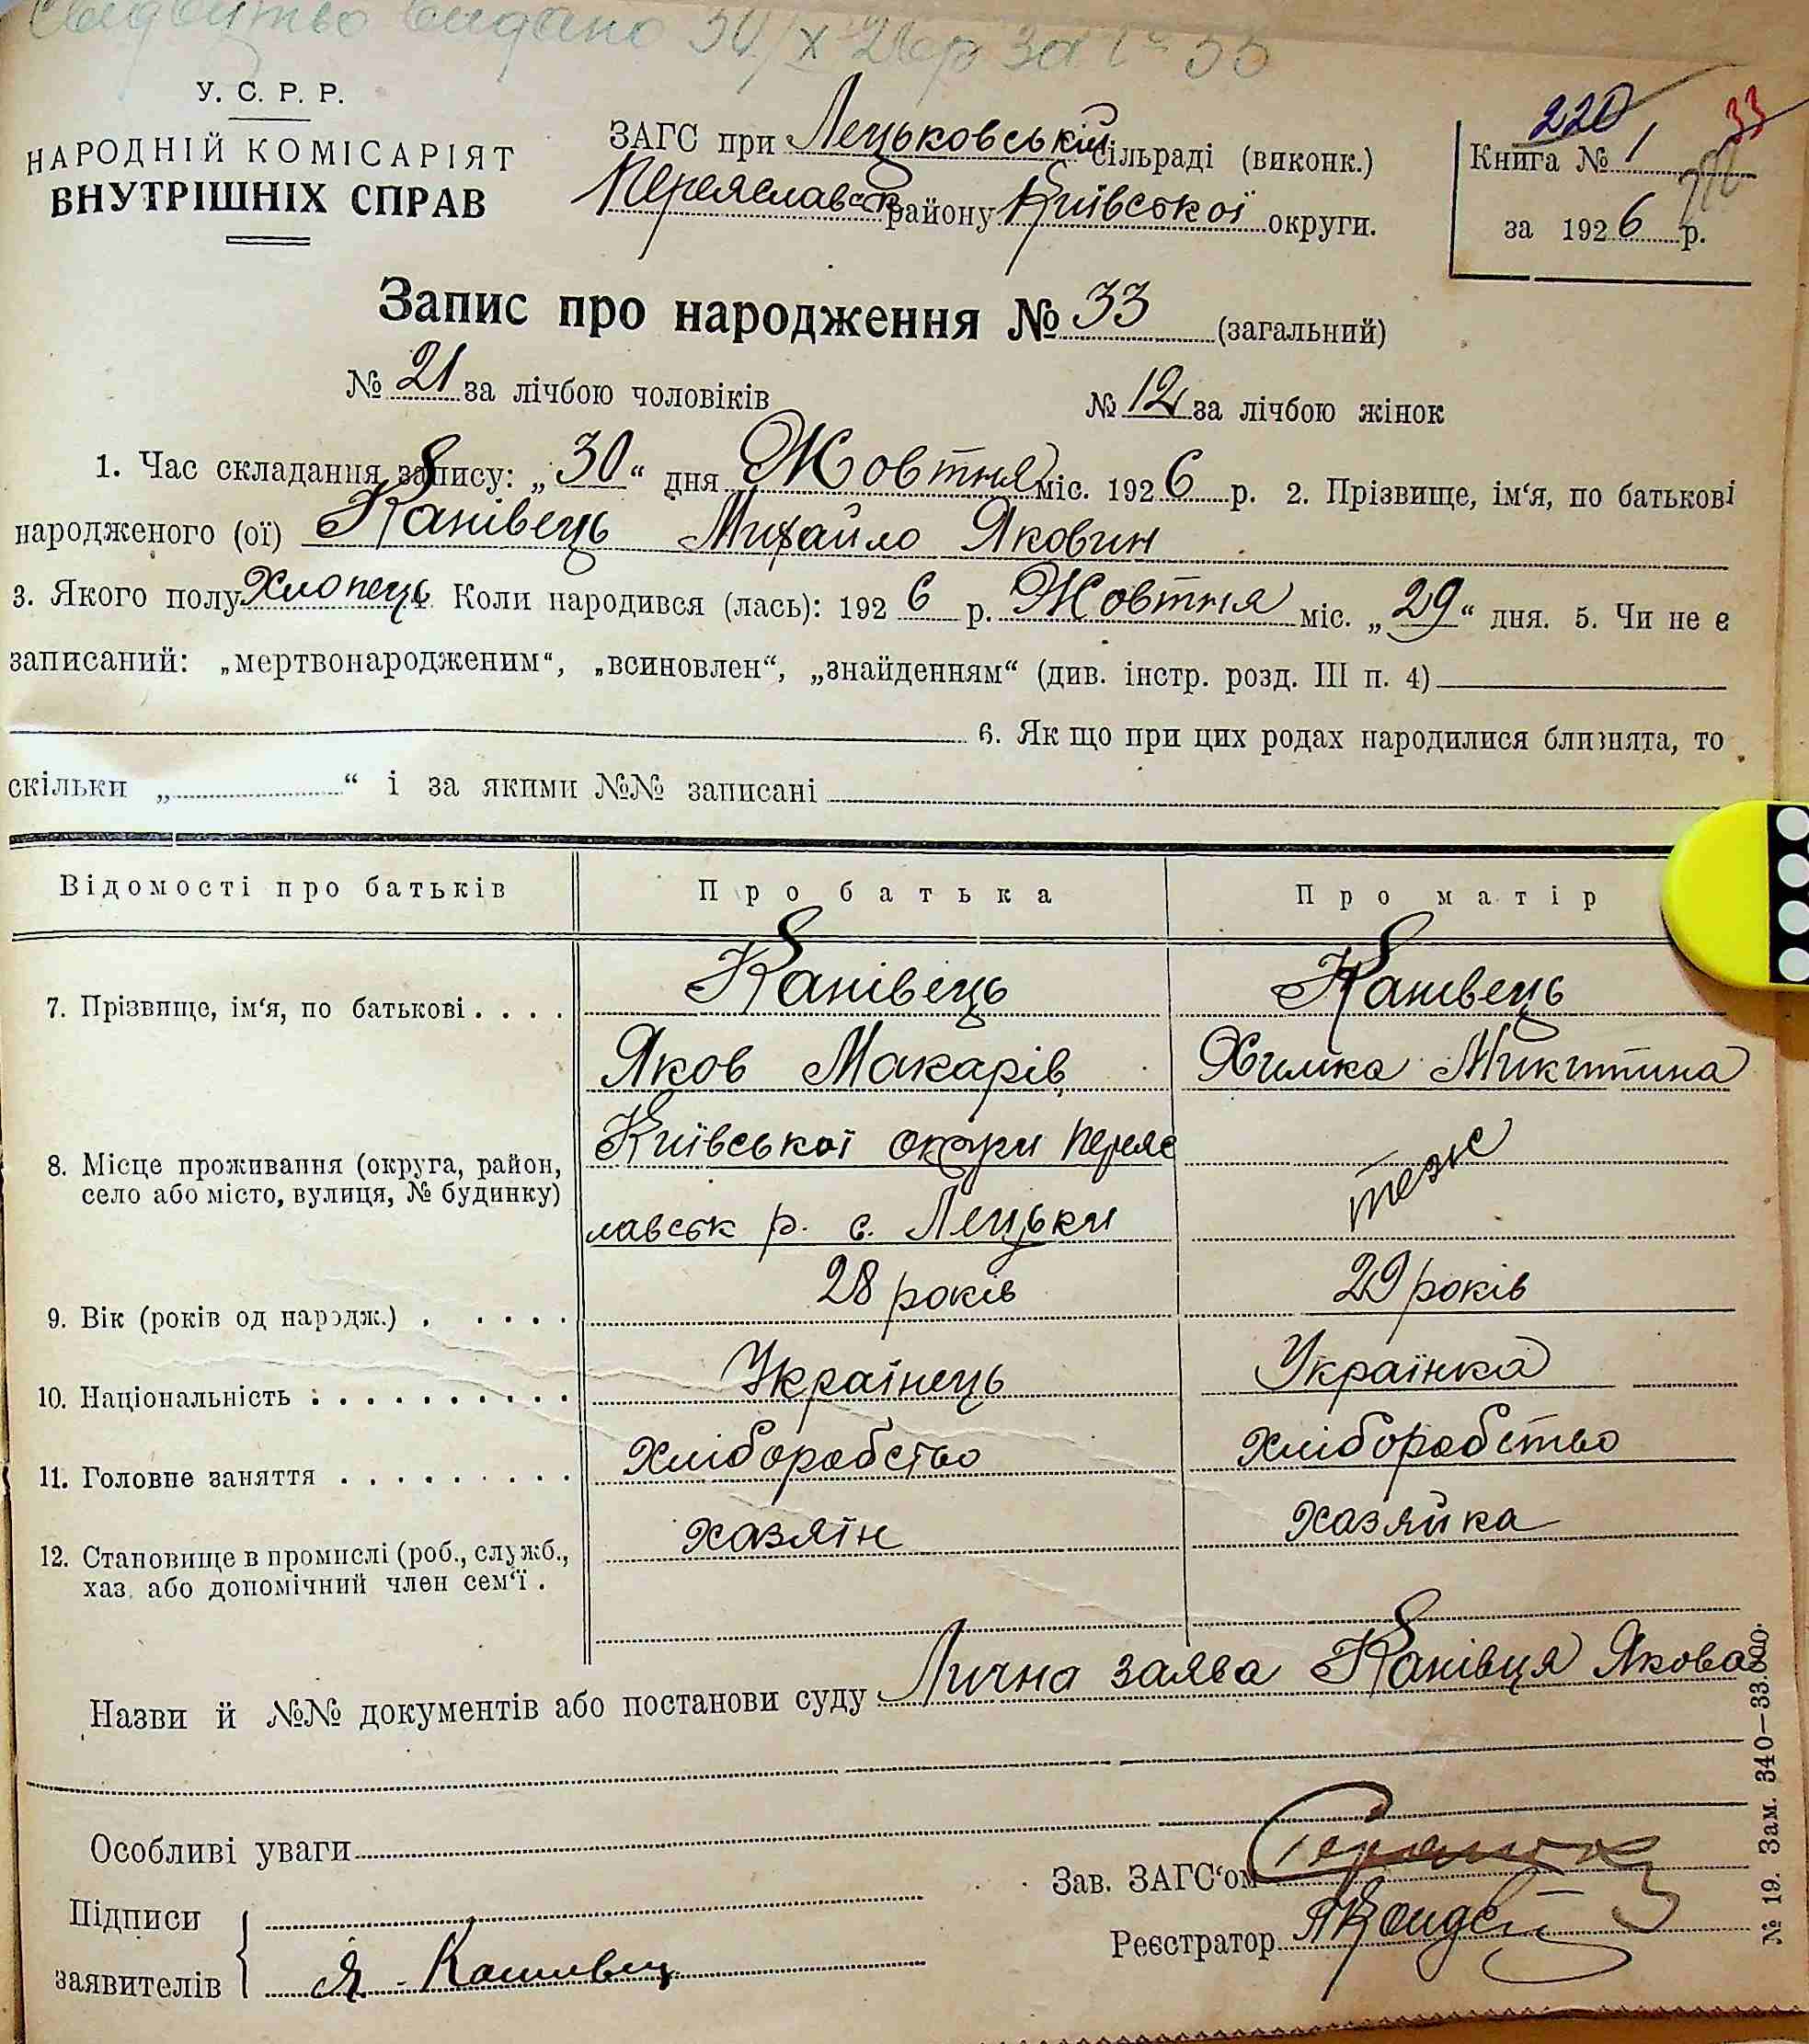 Свідоцтво видано 30/X 26 р за № 33
У. С. Р. Р.
НАРОДНІЙ КОМІСАРІЯТ
ВНУТРІШНІХ СПРАВ
ЗАГС при Лецьковській сільраді (виконк.)
Переяславськ району Київської округи.
220 33
Книга № 1
за 1926 р.
Запис про народження № 33 (загальний)
№ 21 за лічбою чоловіків № 12 за лічбою жінок
1. Час складання запису: „30“ дня Жовтня міс. 1926 р. 2. Прізвище, ім‘я, по батькові
народженого (ої) Канівець Михайло Яковин
3. Якого полу Хлопець Коли народився (лась): 1926 р. Жовтня міс. „29“ дня. 5. Чи не є
записаний: „мертвонародженим“, „всиновлен“, „знайденням“ (див. інстр. розд. III п. 4)
6. Як що при цих родах народилися близнята, то
скільки „ “ і за якими №№ записані
Відомості про батьків Про батька Про матір
7. Прізвище, ім‘я, по батькові . . . . Канівець Канівець
Яков Макарів Химка Микитина
8. Місце проживання (округа, район, село або місто, вулиця, № будинку) Київської округи Переяс тезж
лавськ р. с. Лецьки
9. Вік (років од народж.) . . . . . 28 років 29 років
10. Національність . . . . . . . . . . Українець Українка
11. Головне заняття . . . . . . . . . хліборобство хліборобство
12. Становище в промислі (роб., служб., хаз. або допомічний член сем‘ї . хазяїн хазяйка
Назви й №№ документів або постанови суду Лична заява Канівця Якова
Особливі уваги
Зав. ЗАГС‘ом
Підписи
заявителів Я. Канивец
Реєстратор
№ 19. Зам. 340—33.800.